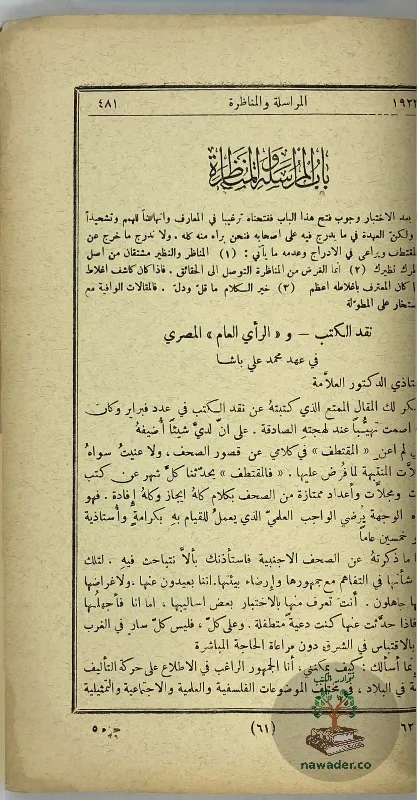 ١٩٢٢ المراسلة والمناظرة ٤٨١
باب المراسلة والمناظرة
بعد الاختبار وجوب فتح هذا الباب ففتحناه ترغيباً في المعارف وانهاضاً للهمم وتشحيذاً
ولكن العهدة في ما يدرج فيه على اصحابه فنحن براء منه كله . ولا ندرج ما خرج عن
المقتطف ويراعى في الادراج وعدمه ما يأتي : (١) المناظر والنظير مشتقان من اصل
نظيرك (٢) انما الغرض من المناظرة التوصل الى الحقائق . فاذا كان كاشف اغلاط
كان المعترف باغلاطه اعظم (٣) خير الكلام ما قلّ ودلّ . فالمقالات الوافية مع
تستخار على المطوّلة
نقد الكتب — و « الرأي العام » المصري
في عهد محمد علي باشا
الدكتور العلاّمة
لك المقال الممتع الذي كتبتهُ عن نقد الكتب في عدد فبراير وكان
اصمت تهيُّباً عند لهجتهِ الصادقة . على انّ لديَّ شيئاً أُضيفهُ
لم اعنِ « المقتطف » في كلامي عن قصور الصحف ، ولا عنيتُ سواهُ
المتقيهة لما فُرض عليها . « فالمقتطف » يحدّثنا كلَّ شهر عن كتب
ومجلاَّت وأعداد ممتازة من الصحف بكلام كلهُ ايجاز وكلهُ إفادة . فهو
الوجهة يُرضي الواجب العلميّ الذي يعملُ للقيام بهِ بكرامةٍ وأستاذية
خمسين عاماً
ما ذكرتهُ عن الصحف الاجنبية فاستأذنك بألاَّ نتباحث فيهِ . لتلك
شأنها في التفاهم مع جمهورها وإرضاء بيئتها. اننا بعيدون عنها ، ولاغراضها
جاهلون . أنت تعرف منها بالاختبار بعض اساليبها ، اما انا فأجهلها
فاذا حدَّثت عنها كنت دعيةً متطفلة . وعلى كلٍّ ، فليس كلّ سارٍ في الغرب
بالاقتباس في الشرق دون مراعاة الحاجة المباشرة
أسألك : كيف يمكنني ، أنا الجمهور الراغب في الاطلاع على حركة التأليف
في البلاد ، في مختلف الموضوعات الفلسفية والعلمية والاجتماعية والتمثيلية
٦٢ (٦١) جزء ٥
نوادر الكتب
nawader.co